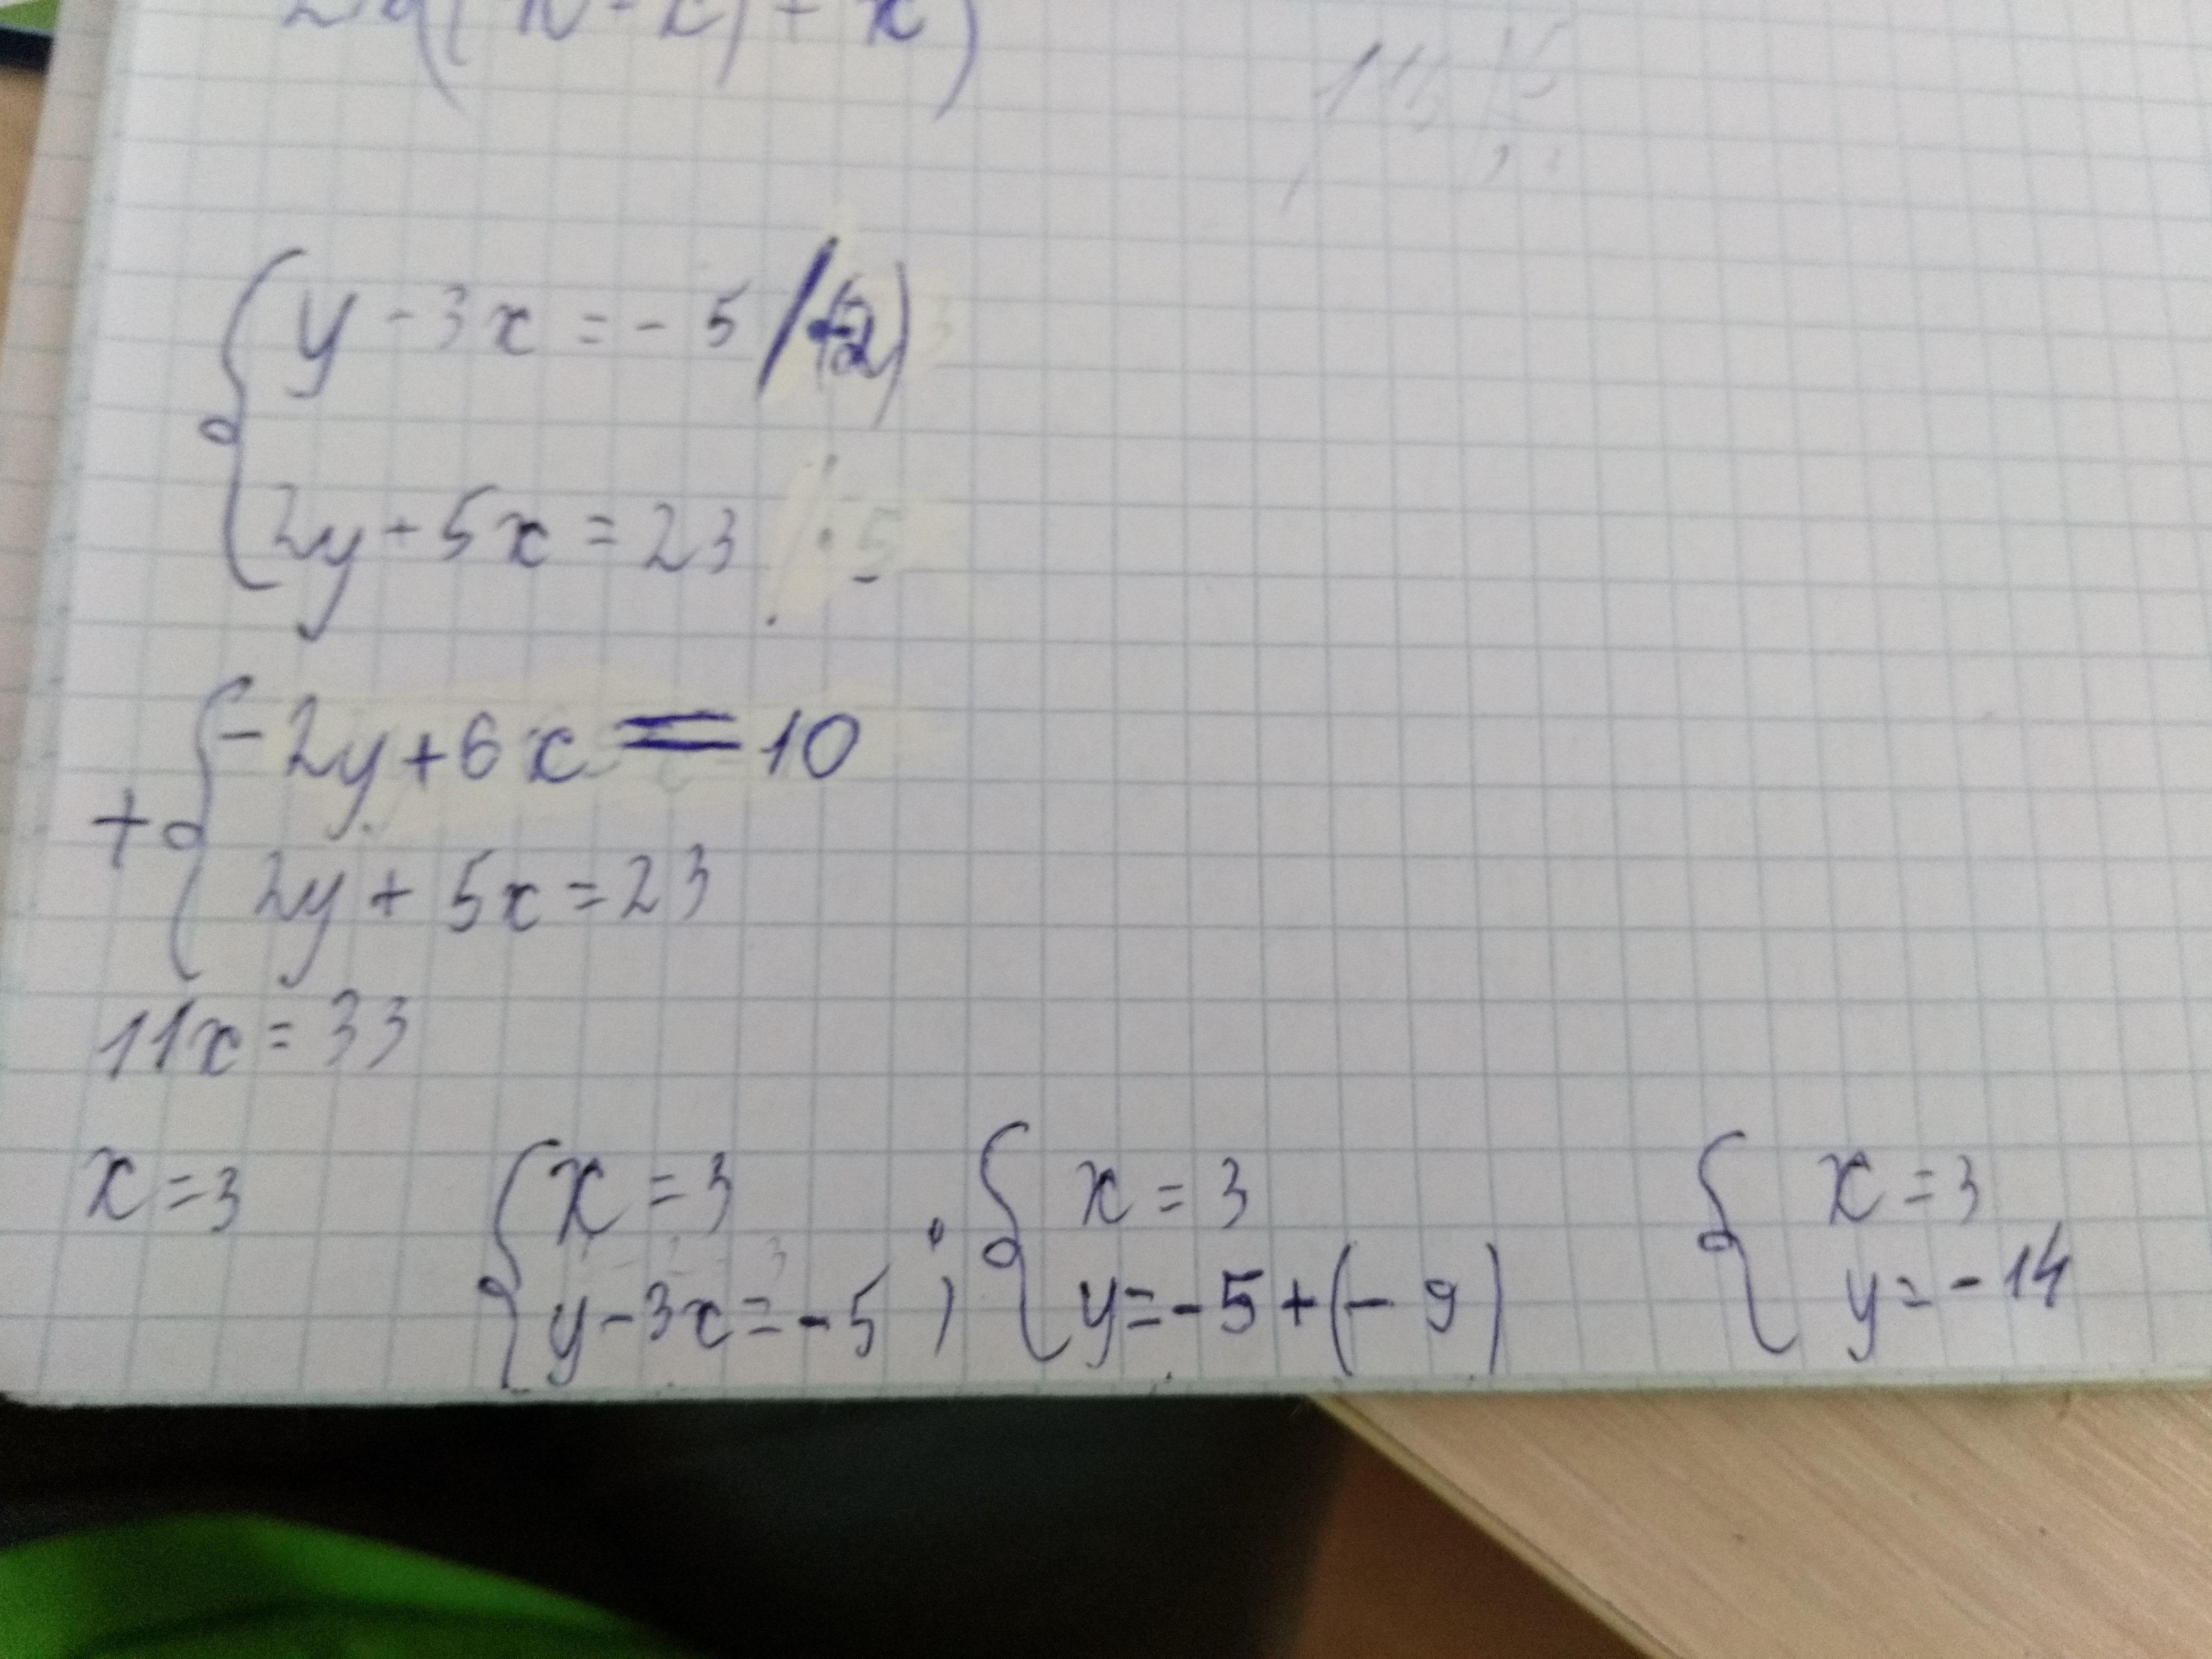 y - 3x = - 5 / (-2)
2y + 5x = 23
- 2y + 6x = 10
+
2y + 5x = 23
11x = 33
x = 3 { x = 3 ; { x = 3 { x = 3
y - 3x = - 5 y = - 5 + (- 9) y = - 14